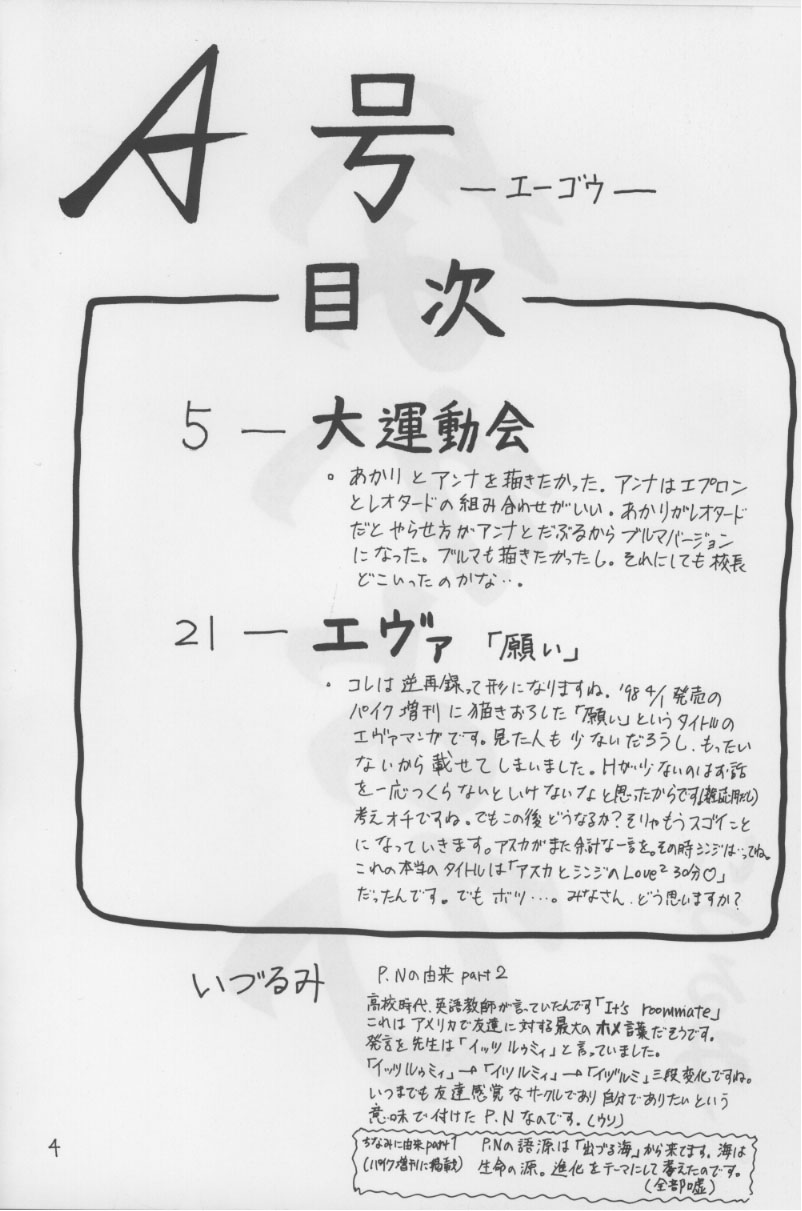 A号 ―エーゴウ―
目次
5 ― 大運動会
。あかりとアンナを描きたかった。アンナはエプロン
とレオタードの組み合わせがいい。あかりがレオタード
だとやらせ方がアンナとだぶるからブルマバージョン
になった。ブルマも描きたかったし。それにしても校長
どこいったのかな…。
21 ― エヴァ 「願い」
。コレは逆再録って形になりますね。'98 4/1 発売の
パイク増刊に描きおろした「願い」というタイトルの
エヴァマンガです。見た人も少ないだろうし、もったい
ないから載せてしまいました。Hが少ないのはお話
を一応つくらないといけないなと思ったからです
考えオチですね。でもこの後どうなるか?そりゃもうスゴイこと
になっていきます。アスカがまた余計な一言を。その時シンジは…ってね。
これの本当のタイトルは「アスカとシンジのLove² 30分♡」
だったんです。でもボツ…。みなさん、どう思いますか?
いづるみ
P.Nの由来 part2
高校時代、英語教師が言っていたんです「It's roommate」
これはアメリカで友達に対する最大のホメ言葉だそうです。
発言を先生は「イッツ ルゥミィ」と言っていました。
「イッツルゥミィ」→「イツルミィ」→「イヅルミ」三段変化ですね。
いつまでも友達感覚なサークルであり自分でありたいという
意味で付けたP.Nなのです。(ウソ)
ちなみに由来part1
(パイク増刊に掲載)
P.Nの語源は「出づる海」から来てます。海は
生命の源。進化をテーマにして考えたのです。
(全部嘘)
4